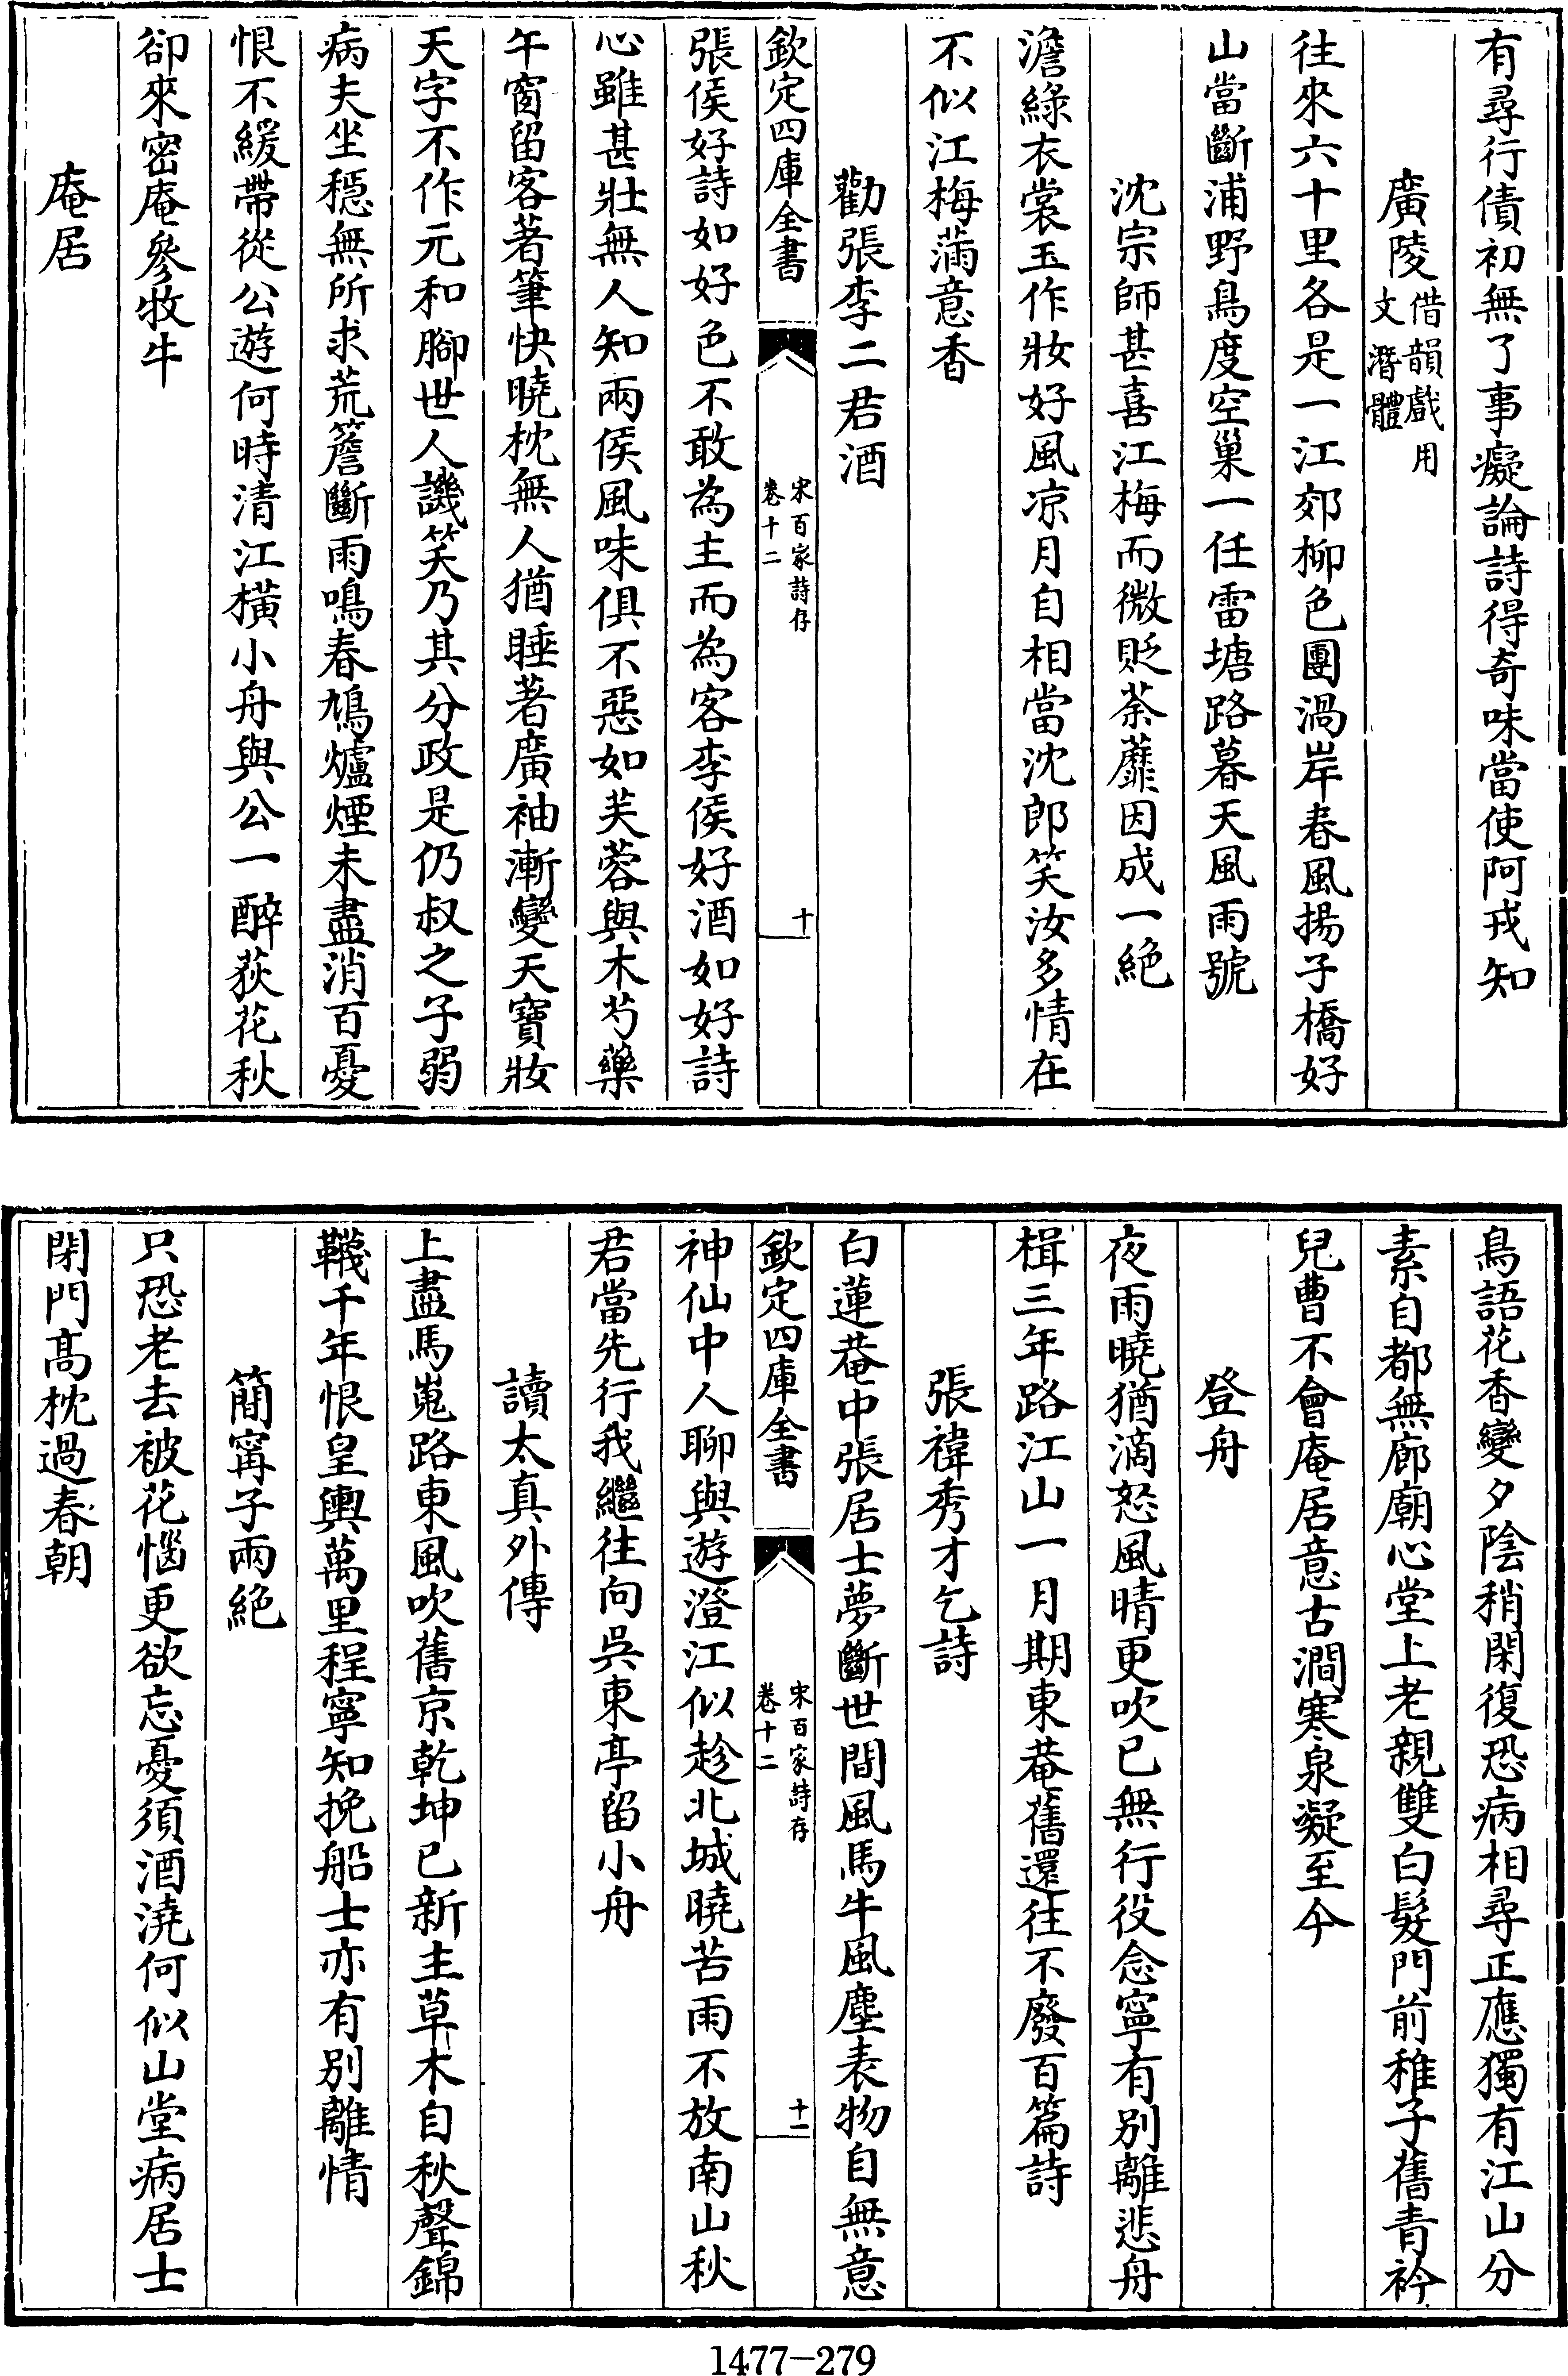 有尋行債初無了事癡論詩得奇味當使阿戎知
廣陵借韻戲用文潛體
往來六十里各是一江郊柳色團渦岸春風揚子橋好
山當斷浦野鳥度空巢一任雷塘路暮天風雨號
沈宗師甚喜江梅而微貶荼蘼因成一絕
澹綠衣裳玉作妝好風凉月自相當沈郎笑汝多情在
不似江梅滿意香
勸張李二君酒
欽定四庫全書
宋百家詩存
卷十二
十
張侯好詩如好色不敢為主而為客李侯好酒如好詩
心雖甚壯無人知兩侯風味俱不惡如芙蓉與木芍藥
午窗留客著筆快曉枕無人猶睡著廣袖漸變天寶妝
天字不作元和腳世人譏笑乃其分政是仍叔之子弱
病夫坐穩無所求荒簷斷雨鳴春鳩爐煙未盡消百憂
恨不緩帶從公遊何時清江橫小舟與公一醉荻花秋
卻來密庵參牧牛
庵居
鳥語花香變夕陰稍閑復恐病相尋正應獨有江山分
素自都無廊廟心堂上老親雙白髮門前稚子舊青衿
兒曹不會庵居意古澗寒泉凝至今
登舟
夜雨曉猶滴怒風晴更吹已無行役念寧有別離悲舟
楫三年路江山一月期東菴舊還往不廢百篇詩
張褘秀才乞詩
白蓮菴中張居士夢斷世間風馬牛風塵表物自無意
欽定四庫全書
宋百家詩存
卷十二
十一
神仙中人聊與遊澄江似趁北城曉苦雨不放南山秋
君當先行我繼往向吳東亭留小舟
讀太真外傳
上盡馬嵬路東風吹舊京乾坤已新主草木自秋聲錦
韈千年恨皇輿萬里程寧知挽船士亦有別離情
簡甯子兩絕
只恐老去被花惱更欲忘憂須酒澆何似山堂病居士
閉門高枕過春朝
1477-279